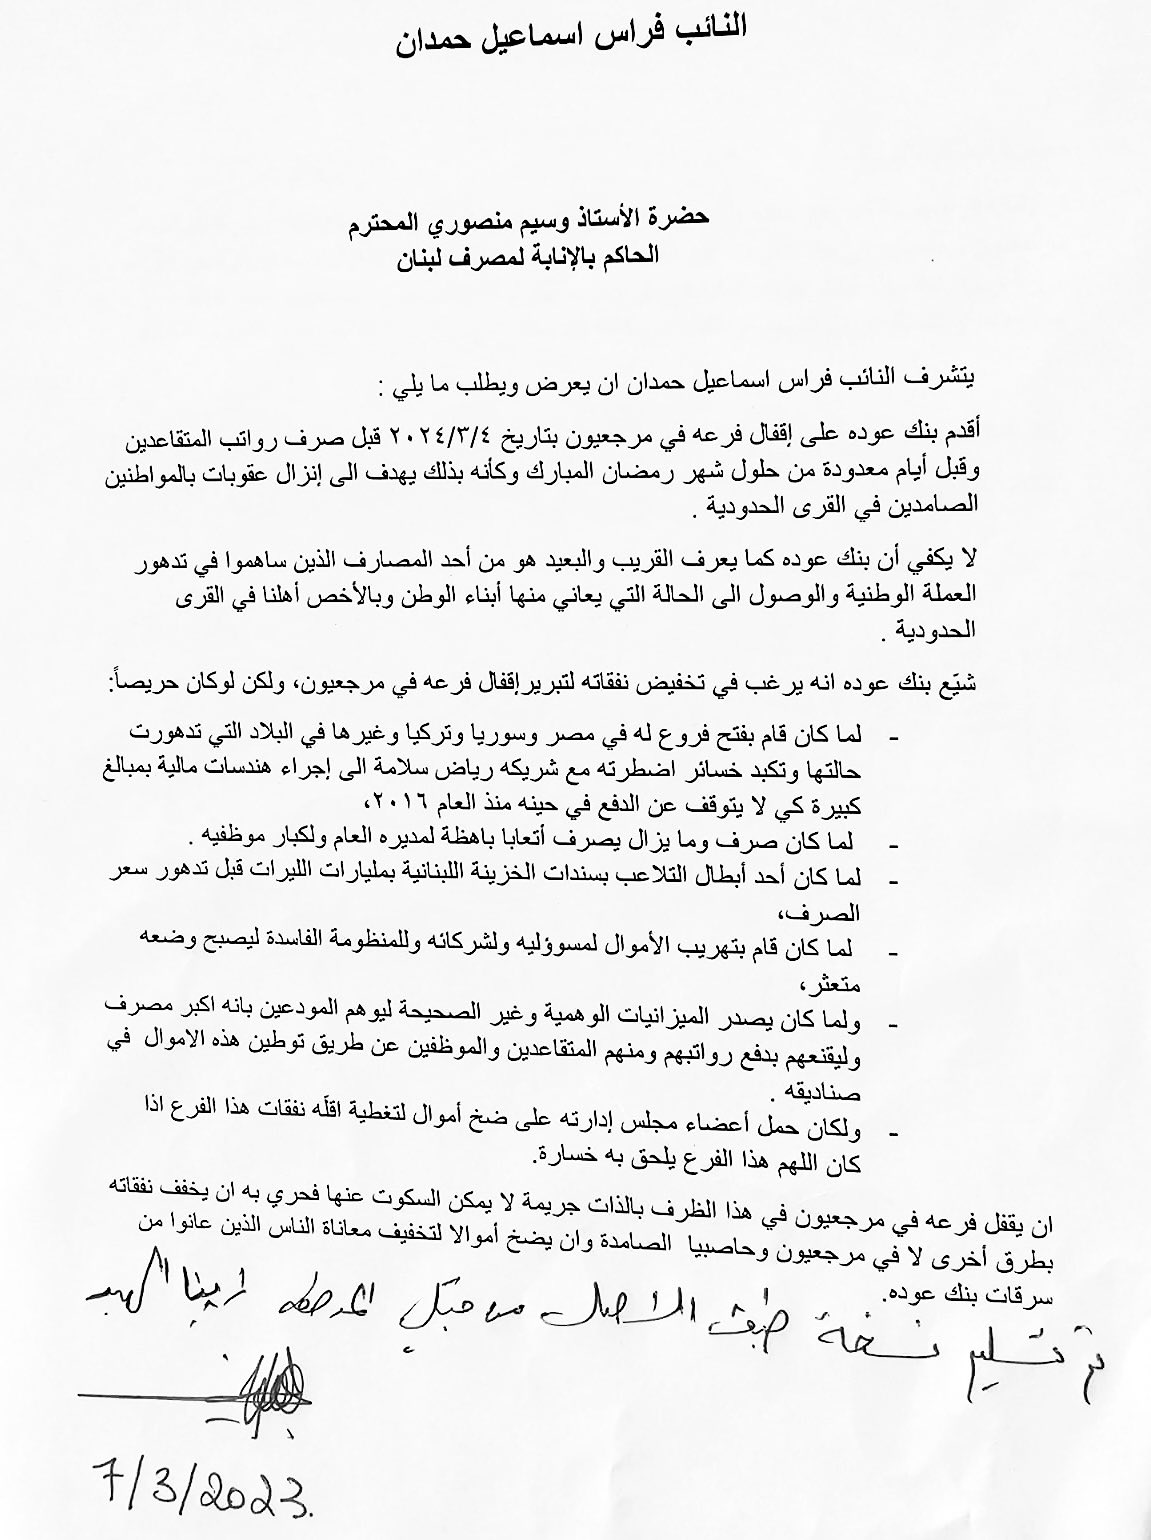 النائب فراس اسماعيل حمدان
حضرة الأستاذ وسيم منصوري المحترم
الحاكم بالإنابة لمصرف لبنان
يتشرف النائب فراس اسماعيل حمدان ان يعرض ويطلب ما يلي :
أقدم بنك عوده على إقفال فرعه في مرجعيون بتاريخ ٢٠٢٤/٣/٤ قبل صرف رواتب المتقاعدين
وقبل أيام معدودة من حلول شهر رمضان المبارك وكأنه بذلك يهدف الى إنزال عقوبات بالمواطنين
الصامدين في القرى الحدودية .
لا يكفي أن بنك عوده كما يعرف القريب والبعيد هو من أحد المصارف الذين ساهموا في تدهور
العملة الوطنية والوصول الى الحالة التي يعاني منها أبناء الوطن وبالأخص أهلنا في القرى
الحدودية .
شيّع بنك عوده انه يرغب في تخفيض نفقاته لتبريرإقفال فرعه في مرجعيون، ولكن لوكان حريصاً:
- لما كان قام بفتح فروع له في مصر وسوريا وتركيا وغيرها في البلاد التي تدهورت
حالتها وتكبد خسائر اضطرته مع شريكه رياض سلامة الى إجراء هندسات مالية بمبالغ
كبيرة كي لا يتوقف عن الدفع في حينه منذ العام ٢٠١٦،
- لما كان صرف وما يزال يصرف أتعابا باهظة لمديره العام ولكبار موظفيه .
- لما كان أحد أبطال التلاعب بسندات الخزينة اللبنانية بمليارات الليرات قبل تدهور سعر
الصرف،
- لما كان قام بتهريب الأموال لمسوؤليه ولشركائه وللمنظومة الفاسدة ليصبح وضعه
متعثر،
- ولما كان يصدر الميزانيات الوهمية وغير الصحيحة ليوهم المودعين بانه اكبر مصرف
وليقنعهم بدفع رواتبهم ومنهم المتقاعدين والموظفين عن طريق توطين هذه الاموال في
صناديقه .
- ولكان حمل أعضاء مجلس إدارته على ضخ أموال لتغطية اقلّه نفقات هذا الفرع اذا
كان اللهم هذا الفرع يلحق به خسارة.
ان يقفل فرعه في مرجعيون في هذا الظرف بالذات جريمة لا يمكن السكوت عنها فحري به ان يخفف نفقاته
بطرق أخرى لا في مرجعيون وحاصبيا الصامدة وان يضخ أموالا لتخفيف معاناة الناس الذين عانوا من
سرقات بنك عوده.
تم تسليم نسخة طبق الاصل من قبل
7/3/2023.